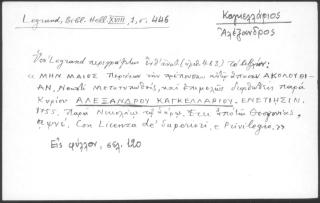 Legrand, Bibl. Hell. XVIII, 1, σ. 446
Καγκελλάριος
Ἀλέξανδρος
Ὁ Legrand περιγράφει
« ΜΗΝ ΜΑΪΟΣ Περιέχων τὴν πρέπουσαν αὐτῷ ἅπασαν ΑΚΟΛΟΥΘΙ-
ΑΝ, Νεωστὶ Μετατυπωθεὶς, καὶ Ἐπιμελῶς διορθωθεὶς παρὰ
Κυρίου ΑΛΕΞΑΝΔΡΟΥ ΚΑΓΚΕΛΛΑΡΙΟΥ. ΕΝΕΤΙΗΣΙΝ.
1755. Παρὰ Νικολάῳ τῷ Σάρῳ. Ἔτει ἀπὸ τῆς Θεογονίας,
αψνέ. Con Licenza de' Superiori, e Privilegio.»
Εἰς φύλλον, σελ. 120